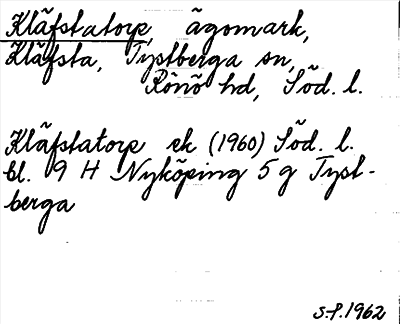 Kläfstatorp, ägomark,
Kläfsta, Tystberga sn,
Rönö hd, Söd. l.
Kläfstatorp ek (1960) Söd. l.
bl. 9 H Nyköping 5 g Tyst-
berga
S.P. 1962